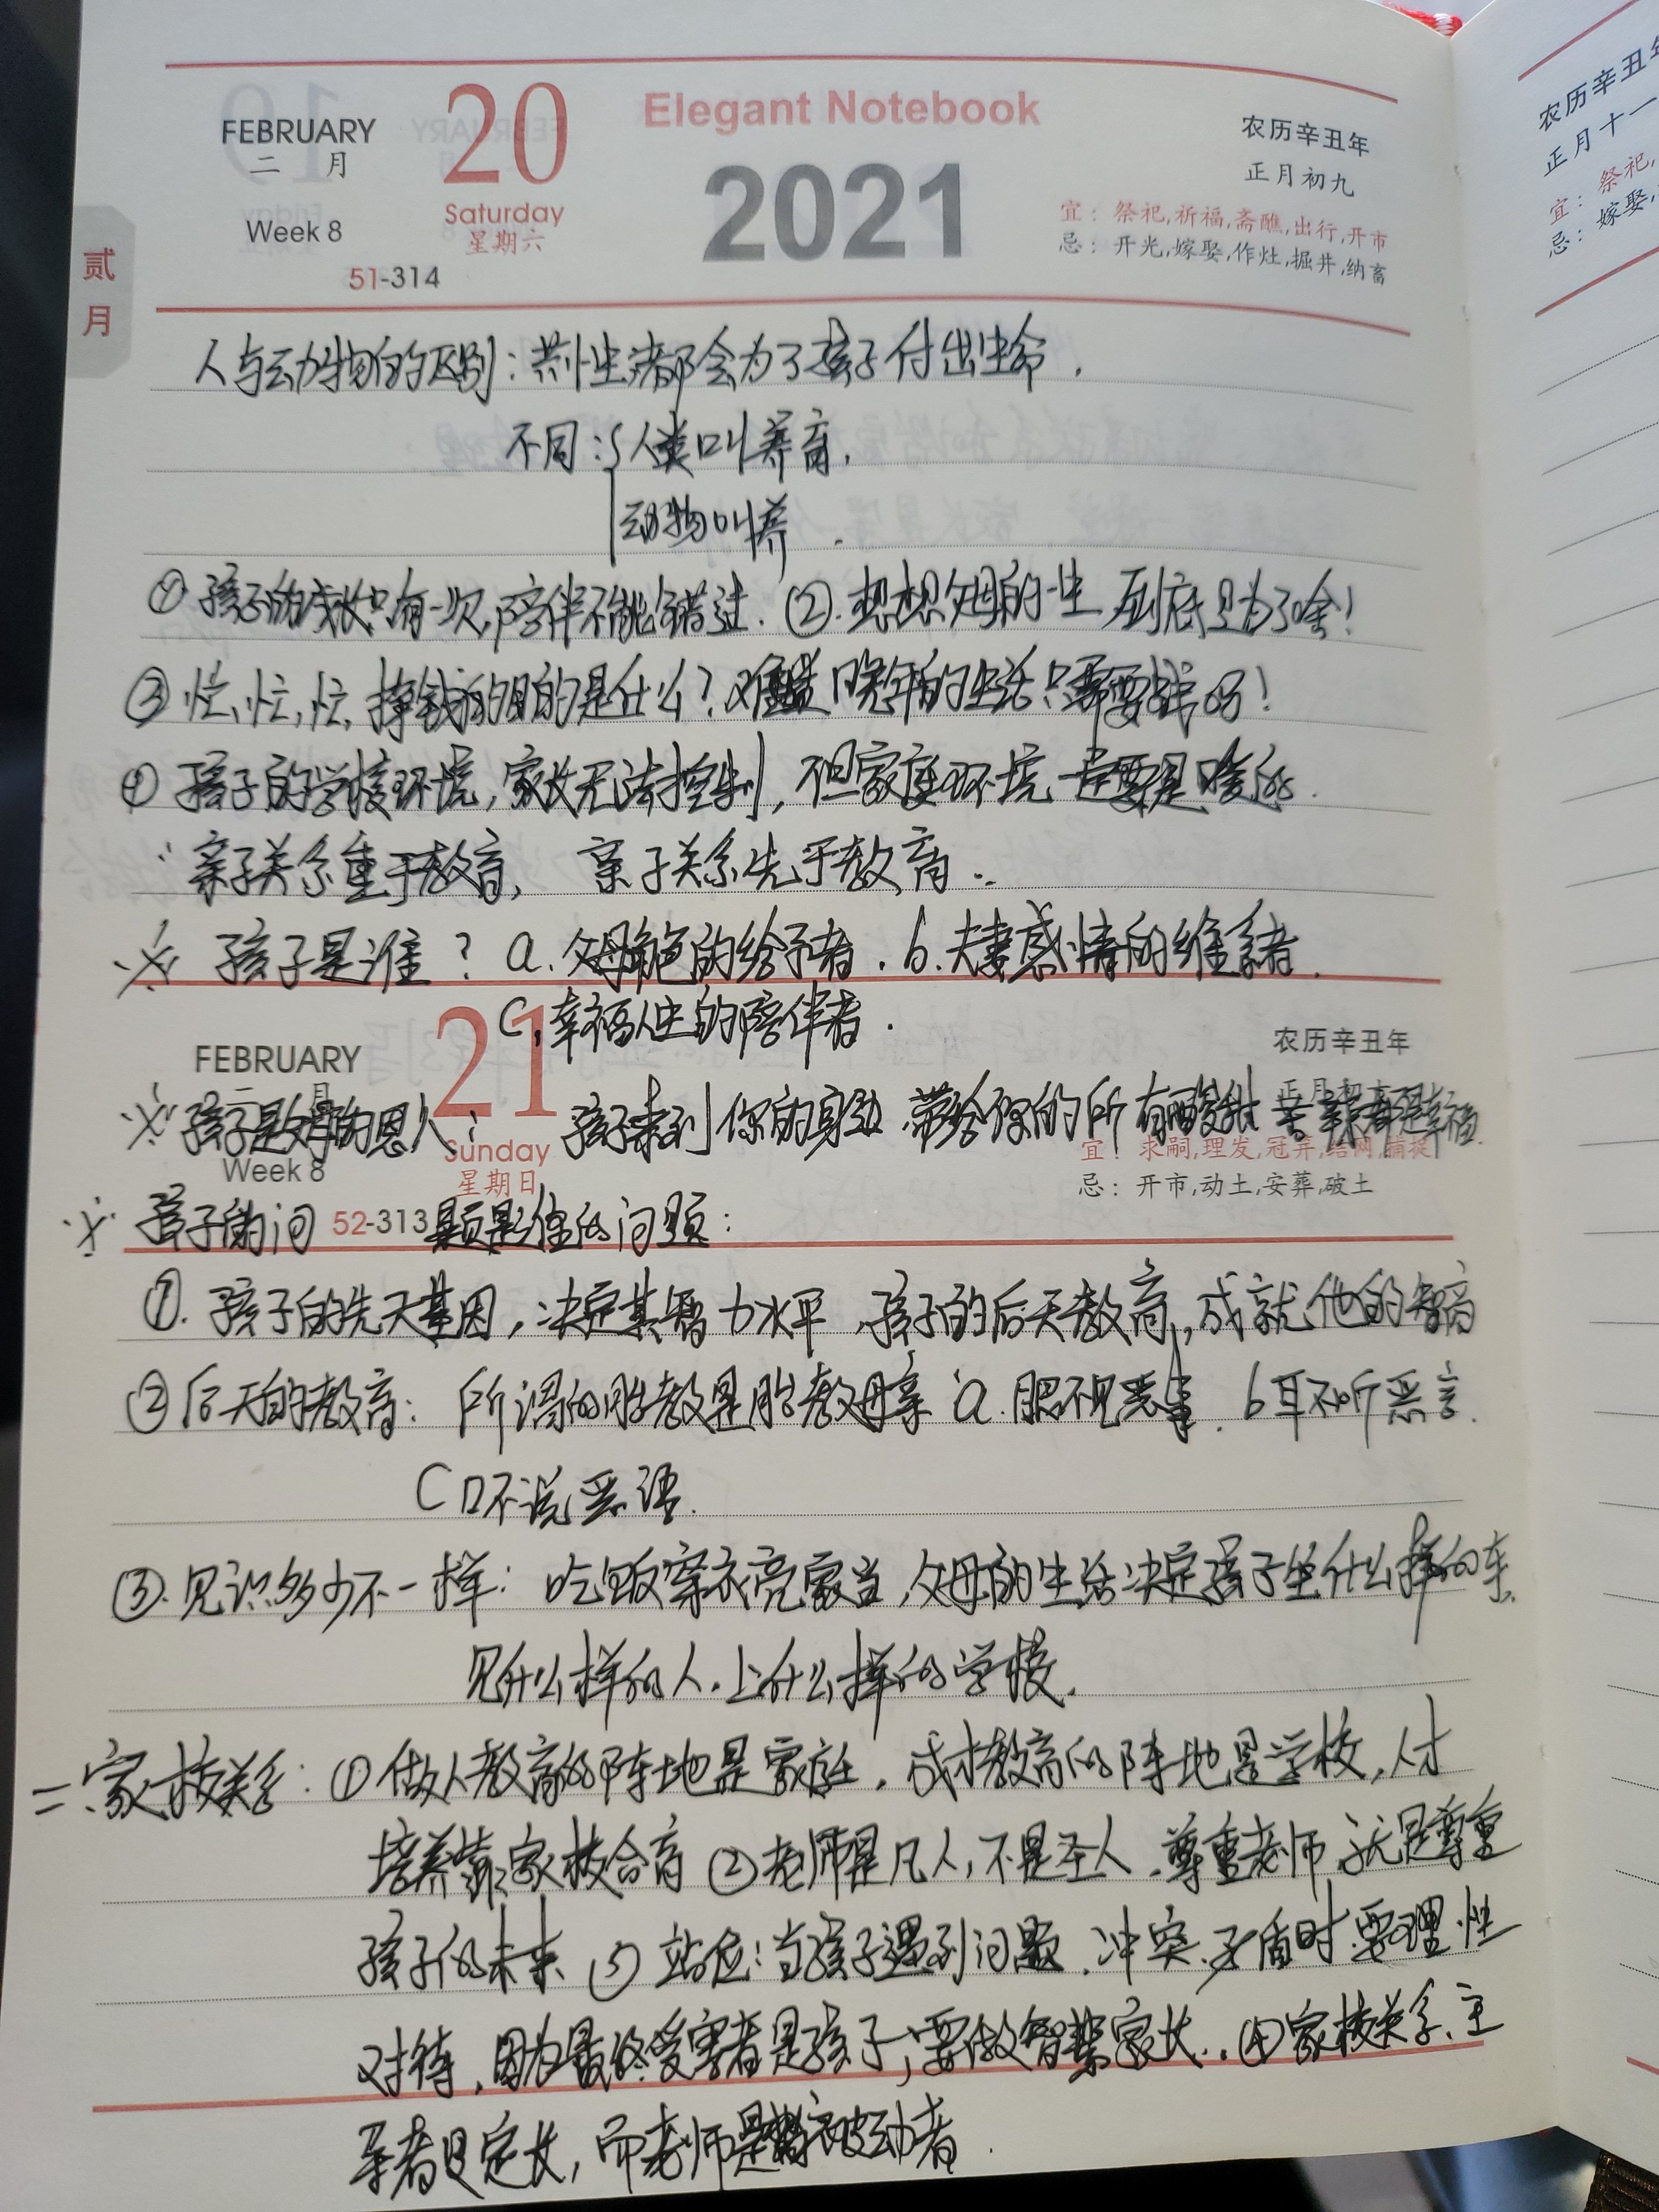 FEBRUARY
二 月
20
Elegant Notebook
2021
农历辛丑年
正月初九
Week 8
Saturday
星期六
51-314
宜：祭祀,祈福,斋醮,出行,开市
忌：开光,嫁娶,作灶,掘井,纳畜
贰
月
农历辛丑年
正月十一
宜：祭祀,
嫁娶,
忌：
人与动物的区别：共性:都会为了孩子付出生命.
不同：人类叫养育.
动物叫养.
① 孩子的成长只有一次,陪伴不能错过. ②. 想想父母的一生,到底是为了啥!
③ 忙、忙,忙, 挣钱的目的是什么? 难道晚年的生活只需要钱吗!
④ 孩子的学校环境,家长无法控制,但家庭环境一定要是
亲子关系重于教育, 亲子关系先于教育.
※ 孩子是谁? a.父母角色的给予者. b.夫妻感情的维系者.
C,幸福人生的陪伴者.
FEBRUARY
21
农历辛丑年
※ 孩子是父母的恩人: 孩子来到你的身边,带给你的所有酸甜苦辣都是幸福.
Week 8
Sunday
星期日
宜：求嗣,理发,冠笄,结网,捕捉
忌：开市,动土,安葬,破土
52-313
※ 孩子的问题是谁的问题：
①. 孩子的先天基因,决定其智力水平,孩子的后天教育,成就他的智商
② 后天的教育：所谓的胎教是胎教母亲 a.眼不见恶事. b耳不听恶言.
C口不说恶语.
③. 见识多少不一样：吃饭穿衣亮家当,父母的生活决定孩子坐什么样的车.
见什么样的人.上什么样的学校.
二.家校关系：① 做人教育的阵地是家庭,成才教育的阵地是学校,人才
培养靠家校合育 ② 老师是凡人,不是圣人.尊重老师就是尊重
孩子的未来 ③ 站位:当孩子遇到问题、冲突、矛盾时要理性
对待,因为最终受害者是孩子,要做智慧家长. ④ 家校关系,主
导者是家长,而老师是被动者.